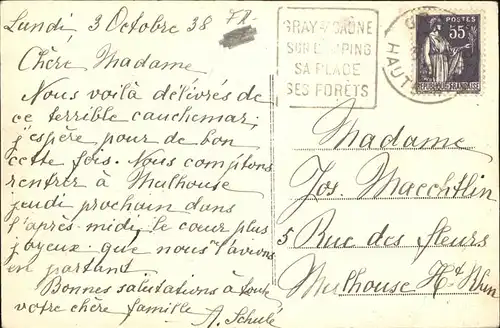 Lundi, 3 Octobre 38
Chère Madame,
Nous voilà délivrés de
ce terrible cauchemar;
j'espère pour de bon
cette fois. Nous comptons
rentrer à Mulhouse
jeudi prochain dans
l'après-midi, le cœur plus
joyeux que nous l'avions
en partant.
Bonnes salutations à toute
votre chère famille
A. Schulé
GRAY S/ SAÔNE
SON CAMPING
SA PLAGE
SES FORÊTS
HAUTE
POSTES
55c
RÉPUBLIQUE FRANÇAISE
Madame
Jos. Maechtlin
5 Rue des fleurs
Mulhouse Ht Rhin